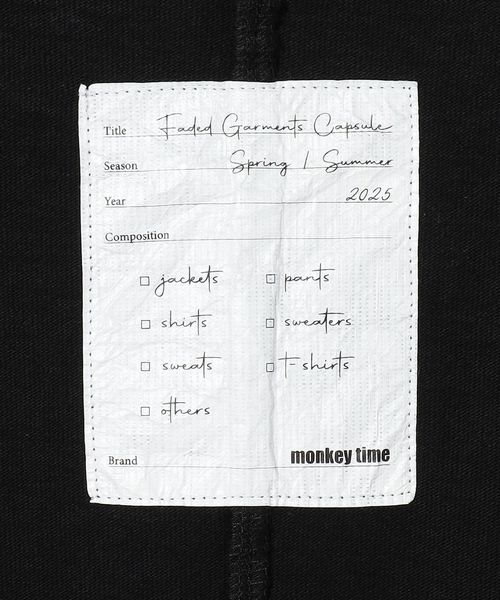 Title Faded Garments Capsule
Season Spring / Summer
Year 2025
Composition
□ jackets □ pants
□ shirts □ sweaters
□ sweats □ t-shirts
□ others
Brand monkey time